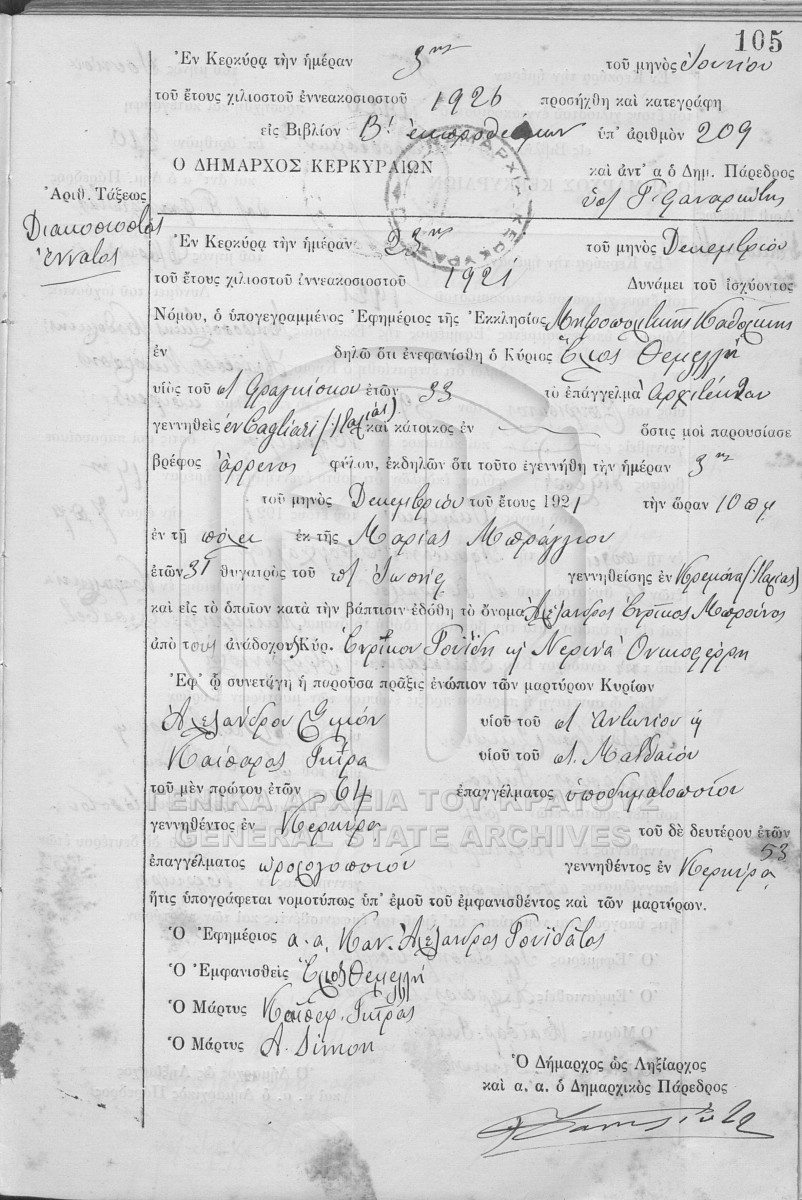 105
Ἐν Κερκύρᾳ τὴν ἡμέραν 3ην τοῦ μηνὸς Ἰουνίου
τοῦ ἔτους χιλιοστοῦ ἐννεακοσιοστοῦ 1926 προσήχθη καὶ κατεγράφη
εἰς Βιβλίον Β! ἐκπροθέσμων ὑπ' ἀριθμὸν 209
Ο ΔΗΜΑΡΧΟΣ ΚΕΡΚΥΡΑΙΩΝ καὶ ἀντ' α ὁ Δημ. Πάρεδρος
Ἀριθ. Τάξεως
Διακοσιοστὸς
ἔννατος
Ἐν Κερκύρᾳ τὴν ἡμέραν 23ην τοῦ μηνὸς Δεκεμβρίου
τοῦ ἔτους χιλιοστοῦ ἐννεακοσιοστοῦ 1921 Δυνάμει τοῦ ἰσχύοντος
Νόμου, ὁ ὑπογεγραμμένος Ἐφημέριος τῆς Ἐκκλησίας Μητροπολιτικῆς Καθολικῆς
ἐν δηλῶ ὅτι ἐνεφανίσθη ὁ Κύριος Ἔλιος Θεμελλῆ
υἱὸς τοῦ Φραγκίσκου ἐτῶν 33 τὸ ἐπάγγελμα Ἀρχιτέκτων
γεννηθεὶς ἐν Cagliari (Ἰταλίας) καὶ κάτοικος ἐν — ὅστις μοὶ παρουσίασε
βρέφος ἄρρενος φύλου, ἐκδηλῶν ὅτι τοῦτο ἐγεννήθη τὴν ἡμέραν 3ην
τοῦ μηνὸς Δεκεμβρίου τοῦ ἔτους 1921 τὴν ὥραν 10 πμ
ἐν τῇ πόλει ἐκ τῆς Μαρίας Μπράγγιου
ἐτῶν 31 θυγατρὸς τοῦ Ἰωσὴφ γεννηθείσης ἐν Κρεμόνα (Ἰταλίας)
καὶ εἰς τὸ ὁποῖον κατὰ τὴν βάπτισιν ἐδόθη τὸ ὄνομα Ἀλέξανδρος Ἐνρῖκος Μπροῦνος
ἀπὸ τοὺς ἀνάδοχους Κύρ. Ἐνρῖκον Γουΐδη κ Νερίνα
Ἐφ' ᾧ συνετάγη ἡ παροῦσα πρᾶξις ἐνώπιον τῶν μαρτύρων Κυρίων
Ἀλεξάνδρου Σιμὸν υἱοῦ τοῦ Ἀντωνίου κ
Καίσαρος Γκίρα υἱοῦ τοῦ Ματθαίου
τοῦ μὲν πρώτου ἐτῶν 64 ἐπαγγέλματος ὑποδηματοποιοῦ
γεννηθέντος ἐν Κερκύρᾳ τοῦ δὲ δευτέρου ἐτῶν 53
ἐπαγγέλματος ὡρολογοποιοῦ γεννηθέντος ἐν Κερκύρᾳ
ἥτις ὑπογράφεται νομοτύπως ὑπ' ἐμοῦ τοῦ ἐμφανισθέντος καὶ τῶν μαρτύρων.
Ὁ Ἐφημέριος α.α. Καν. Ἀλέξανδρος Γουϊδάτος
Ὁ Ἐμφανισθεὶς Ἔλιος Θεμελλῆ
Ὁ Μάρτυς Καῖσαρ Γκίρας
Ὁ Μάρτυς A. Simon
Ὁ Δήμαρχος ὡς Ληξίαρχος
καὶ α. α. ὁ Δημαρχικὸς Πάρεδρος
ΓΕΝΙΚΑ ΑΡΧΕΙΑ ΤΟΥ ΚΡΑΤΟΥΣ
GENERAL STATE ARCHIVES